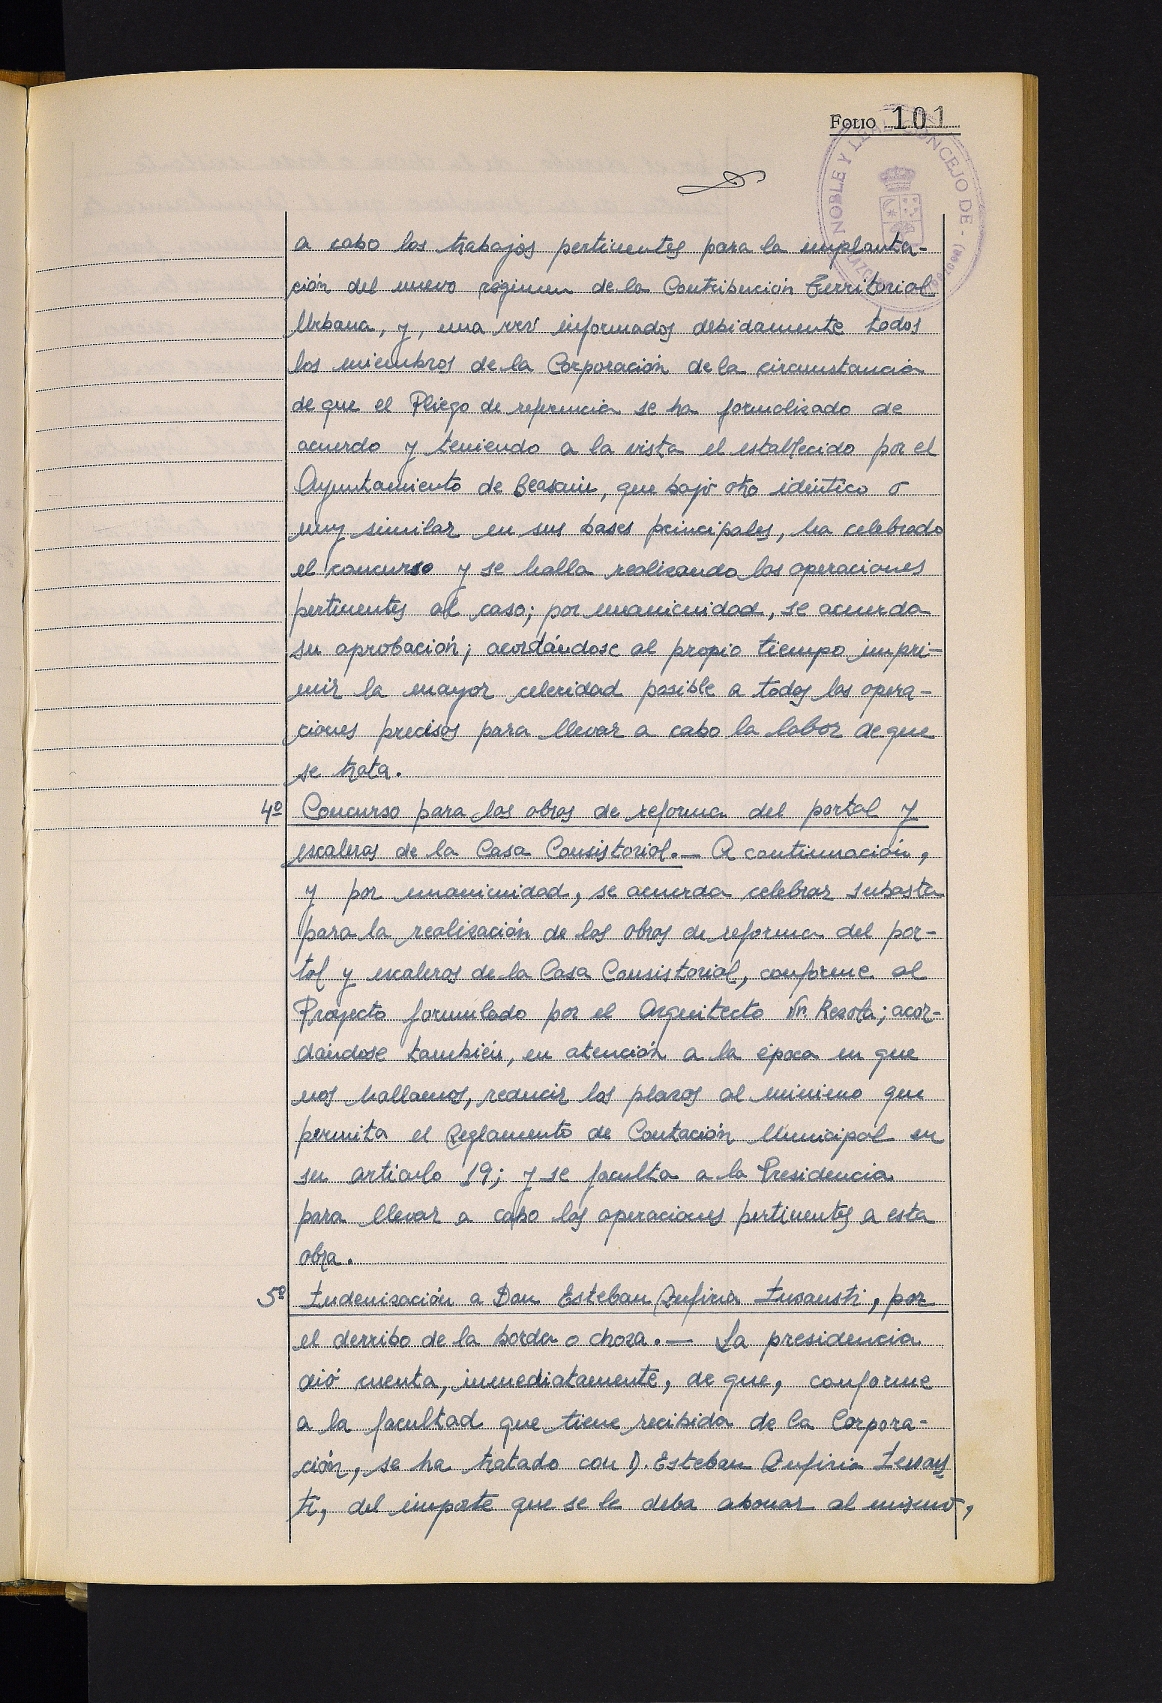 FOLIO 101
NOBLE Y LEAL CONCEJO DE
a cabo los trabajos pertinentes para la implanta-
ción del nuevo régimen de la Contribución Territorial
Urbana, y, una vez informados debidamente todos
los miembros de la Corporación de la circunstancia
de que el Pliego de referencia se ha formalizado de
acuerdo y teniendo a la vista el establecido por el
Ayuntamiento de Beasain, que bajo otro idéntico o
muy similar en sus bases principales, ha celebrado
el concurso y se halla realizando las operaciones
pertinentes al caso; por unanimidad, se acuerda
su aprobación; acordándose al propio tiempo impri-
mir la mayor celeridad posible a todas las opera-
ciones precisas para llevar a cabo la labor de que
se trata.
4º Concurso para las obras de reforma del portal y
escaleras de la Casa Consistorial.— A continuación,
y por unanimidad, se acuerda celebrar subasta
para la realización de las obras de reforma del por-
tal y escaleras de la Casa Consistorial, conforme al
Proyecto formulado por el Arquitecto Sr. Rezola; acor-
dándose también, en atención a la época en que
nos hallamos, reducir los plazos al mínimo que
permita el Reglamento de Contación Municipal en
su artículo 19; y se faculta a la Presidencia
para llevar a cabo las operaciones pertinentes a esta
obra.
5º Indenización a Don Esteban Zufiria Insausti, por
el derribo de la borda o choza.— La presidencia
dió cuenta, inmediatamente, de que, conforme
a la facultad que tiene recibida de la Corpora-
ción, se ha tratado con D. Esteban Zufiria Insaus
ti, del importe que se le deba abonar al mismo,